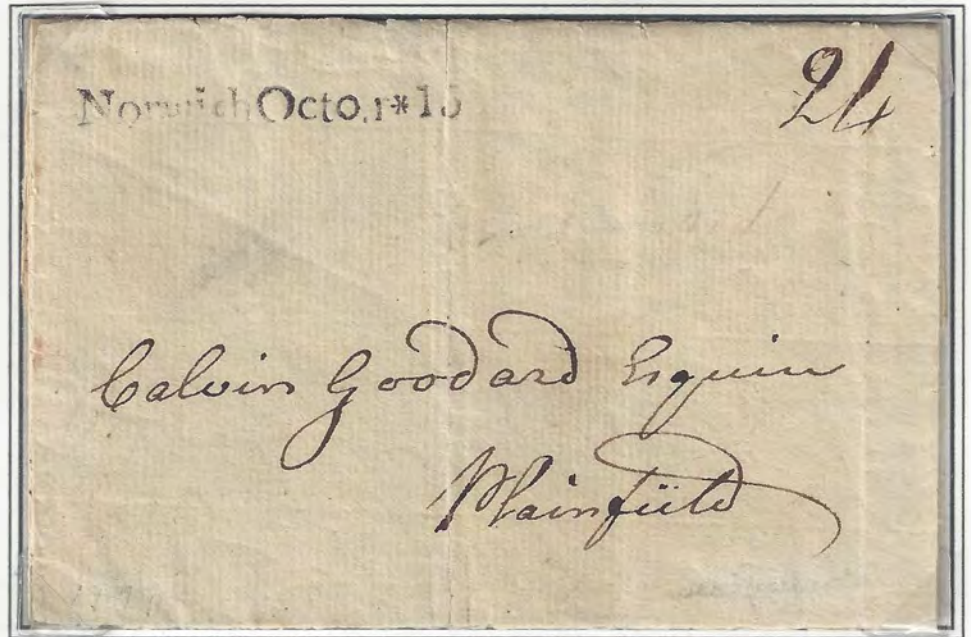 Norwich Octo.r*15
24
Calvin Goddard Esquire
Plainfield